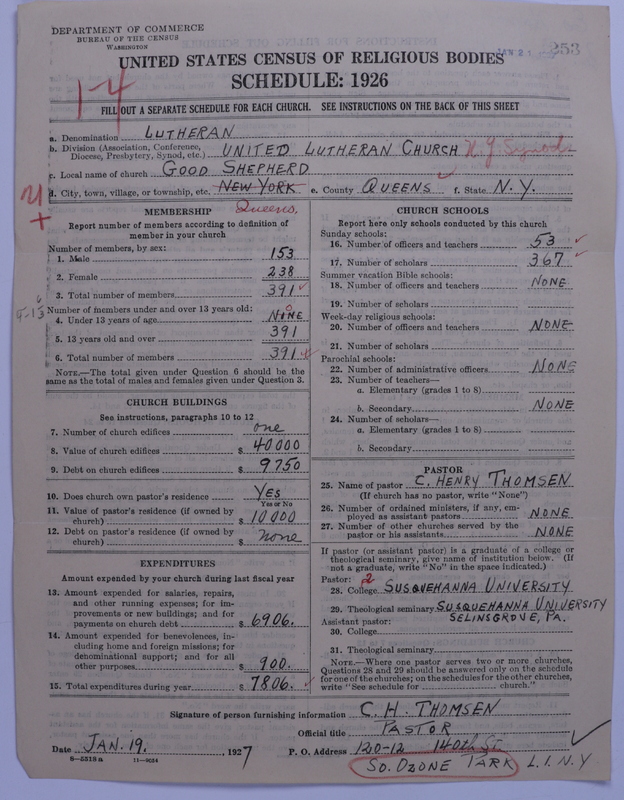 DEPARTMENT OF COMMERCE
BUREAU OF THE CENSUS
WASHINGTON
JAN 21
253
UNITED STATES CENSUS OF RELIGIOUS BODIES
SCHEDULE: 1926
1-4
FILL OUT A SEPARATE SCHEDULE FOR EACH CHURCH. SEE INSTRUCTIONS ON THE BACK OF THIS SHEET
a. Denomination LUTHERAN
b. Division (Association, Conference, Diocese, Presbytery, Synod, etc.) UNITED LUTHERAN CHURCH N.Y. Synod
c. Local name of church GOOD SHEPHERD
d. City, town, village, or township, etc. NEW YORK e. County QUEENS f. State N.Y.
Queens,
MEMBERSHIP
Report number of members according to definition of member in your church
Number of members, by sex:
1. Male 153
2. Female 238
3. Total number of members 391
Number of members under and over 13 years old:
4. Under 13 years of age NONE
5. 13 years old and over 391
6. Total number of members 391
NOTE.—The total given under Question 6 should be the same as the total of males and females given under Question 3.
CHURCH BUILDINGS
See instructions, paragraphs 10 to 12
7. Number of church edifices one
8. Value of church edifices $ 40000
9. Debt on church edifices $ 9750
10. Does church own pastor's residence YES
Yes or No
11. Value of pastor's residence (if owned by church) $ 10000
12. Debt on pastor's residence (if owned by church) $ none
EXPENDITURES
Amount expended by your church during last fiscal year
13. Amount expended for salaries, repairs, and other running expenses; for improvements or new buildings; and for payments on church debt $ 6906.
14. Amount expended for benevolences, including home and foreign missions; for denominational support; and for all other purposes $ 900.
15. Total expenditures during year $ 7806.
CHURCH SCHOOLS
Report here only schools conducted by this church
Sunday schools:
16. Number of officers and teachers 53
17. Number of scholars 367
Summer vacation Bible schools:
18. Number of officers and teachers NONE
19. Number of scholars
Week-day religious schools:
20. Number of officers and teachers NONE
21. Number of scholars
Parochial schools:
22. Number of administrative officers NONE
23. Number of teachers—
a. Elementary (grades 1 to 8)
b. Secondary NONE
24. Number of scholars—
a. Elementary (grades 1 to 8)
b. Secondary
PASTOR
25. Name of pastor C. HENRY THOMSEN
(If church has no pastor, write "None")
26. Number of ordained ministers, if any, employed as assistant pastors NONE
27. Number of other churches served by the pastor or his assistants NONE
If pastor (or assistant pastor) is a graduate of a college or theological seminary, give name of institution below. (If not a graduate, write "No" in the space indicated.)
Pastor: 2
28. College SUSQUEHANNA UNIVERSITY
29. Theological seminary SUSQUEHANNA UNIVERSITY
SELINSGROVE, PA.
Assistant pastor:
30. College
31. Theological seminary
NOTE.—Where one pastor serves two or more churches, Questions 28 and 29 should be answered only on the schedule for one of the churches; on the schedules for the other churches, write "See schedule for church."
Signature of person furnishing information C. H. THOMSEN
Official title PASTOR
Date JAN. 19. 1927 P. O. Address 120-12 140th St.
SO. OZONE PARK L.I. N.Y
8-5518a 11-9024